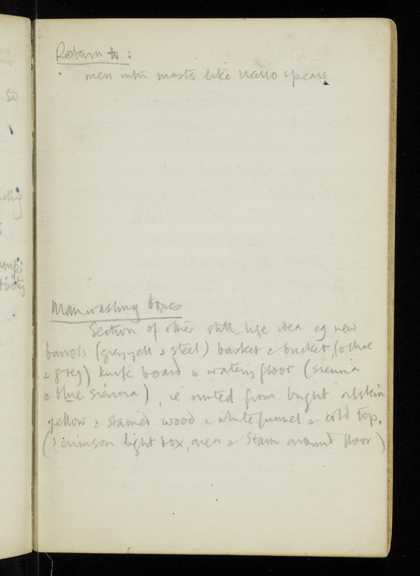 50
Return to :
men with masts like narro spears
Man washing boxes
Section of other still life idea eg new
barrels (grey, yell & steel) basket & bucket (ochre
& grey) knife board & watery floor (sienna
& blue sienna), ie muted from bright
yellow & stained wood & white funnel & cold tap.
(& crimson light box, area & stain around floor)